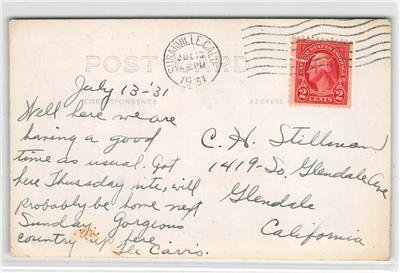 POST CARD
CORRESPONDENCE
ADDRESS
SUSANVILLE, CALIF.
1931
UNITED STATES POSTAGE
2 CENTS 2
July 13-31
Well here we are
having a good
time as usual. Got
here Thursday nite, will
probably be home next
Sunday. Gorgeous
country up here
The Carrs.
C. H. Stillman
1419-So. Glendale Ave
Glendale
California